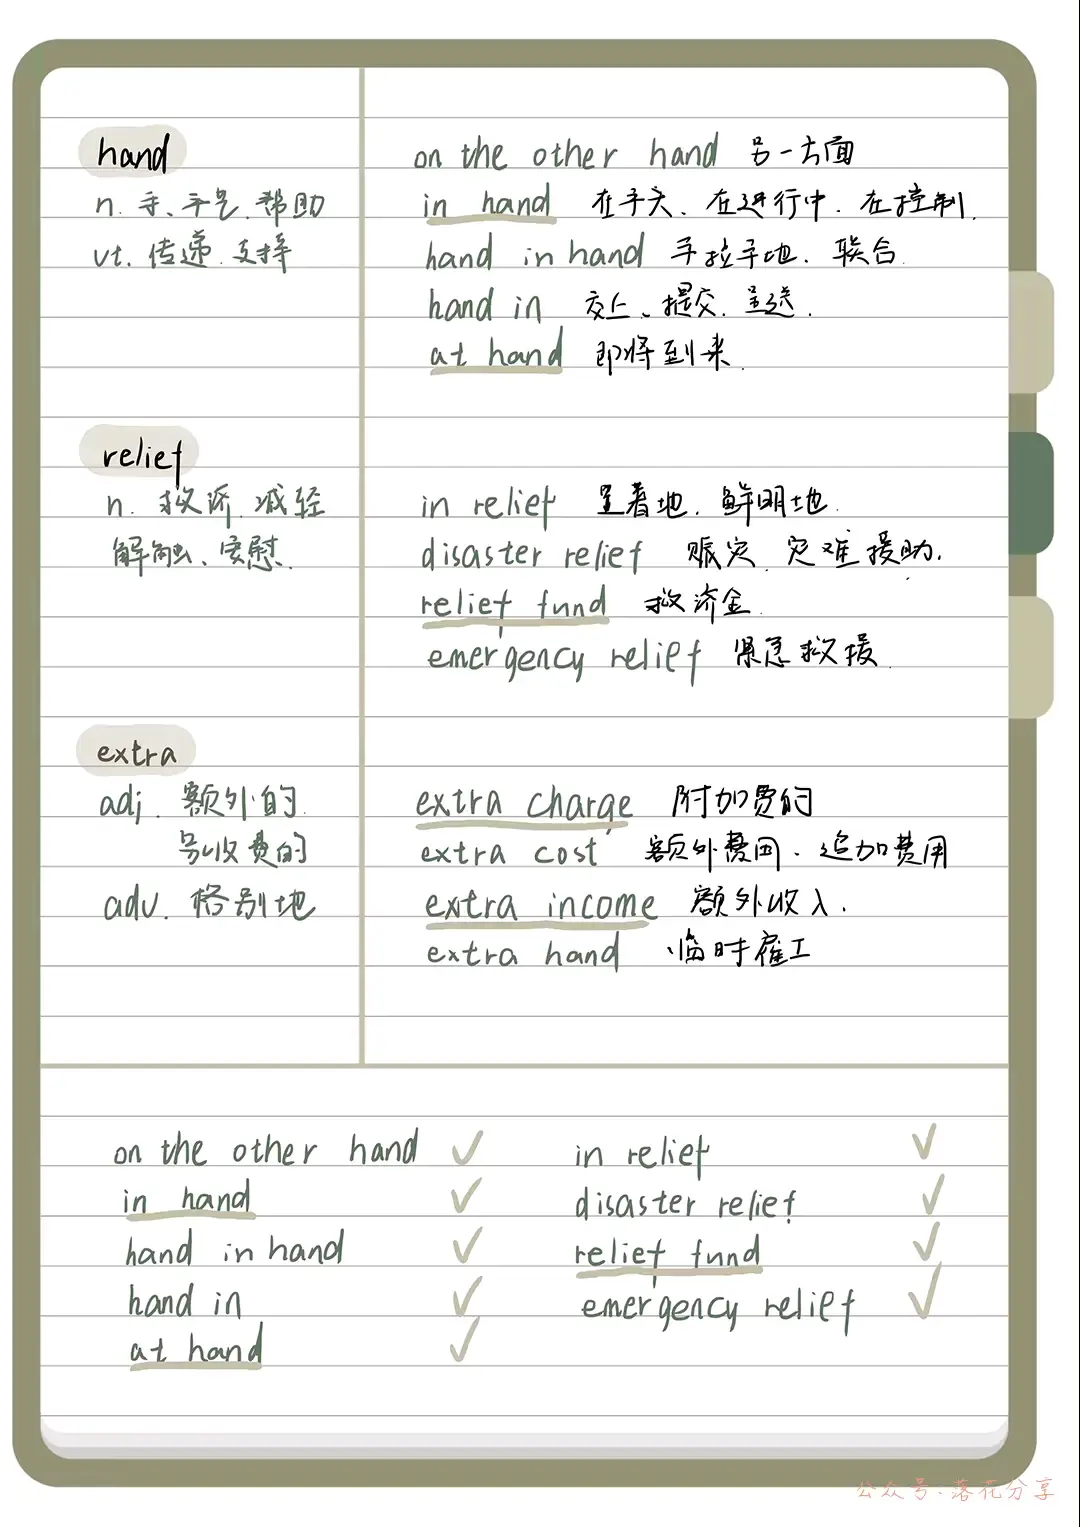 hand
n. 手、手艺、帮助
vt. 传递、支持
on the other hand 另一方面
in hand 在手头、在进行中、在控制.
hand in hand 手拉手地、联合.
hand in 交上、提交、呈送.
at hand 即将到来.
relief
n. 救济、减轻
解脱、安慰.
in relief 显著地、鲜明地.
disaster relief 赈灾、灾难援助.
relief fund 救济金.
emergency relief 紧急救援.
extra
adj. 额外的.
另收费的
adv. 格别地
extra charge 附加费的
extra cost 额外费用、追加费用
extra income 额外收入.
extra hand 临时雇工
on the other hand ✓
in hand ✓
hand in hand ✓
hand in ✓
at hand ✓
in relief ✓
disaster relief ✓
relief fund ✓
emergency relief ✓
公众号:落花分享